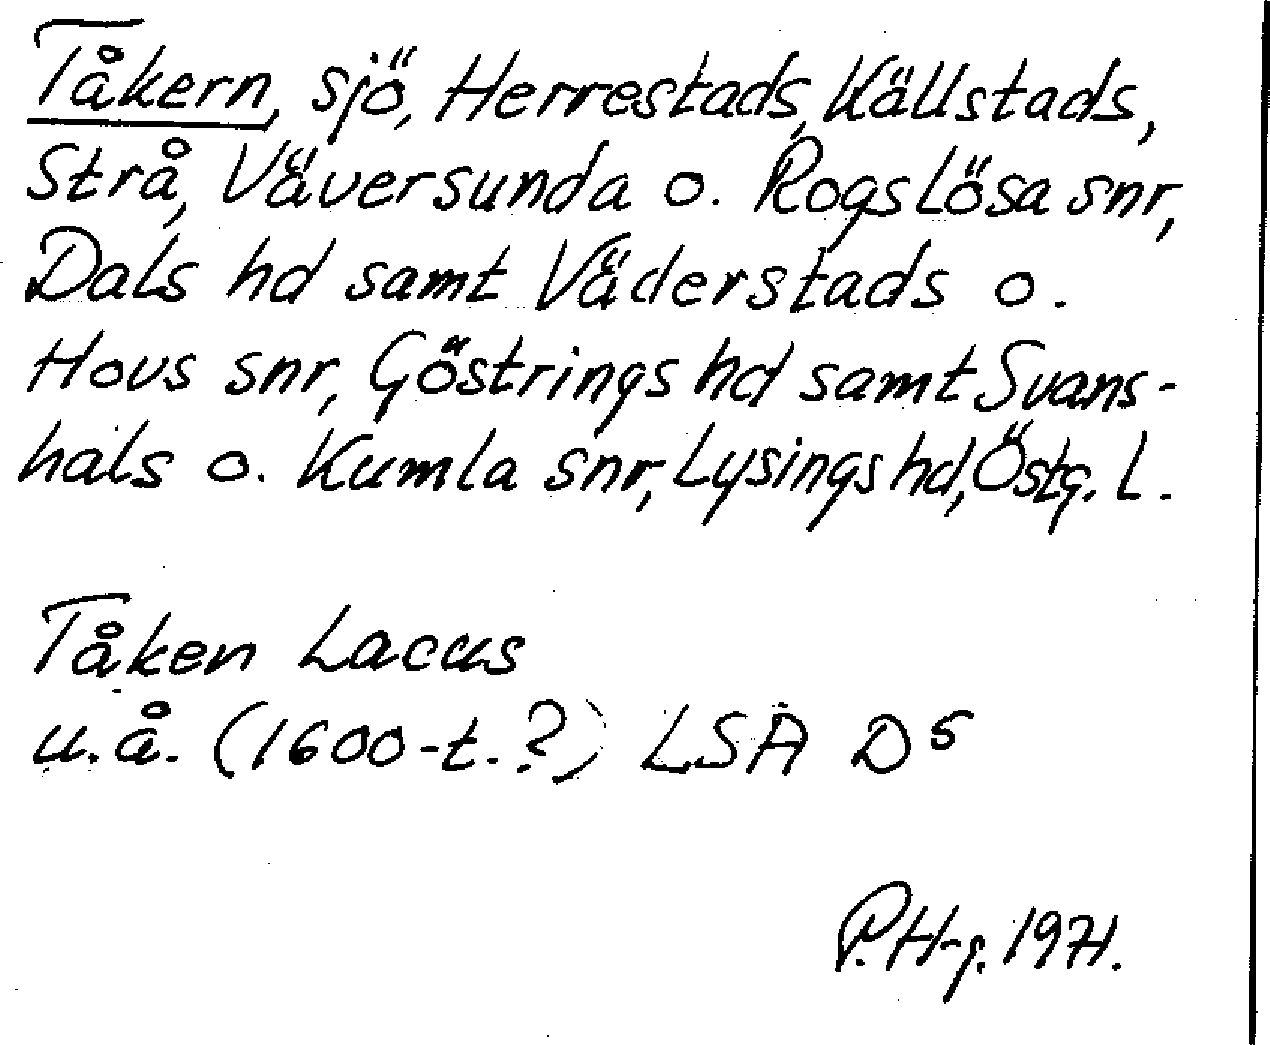 Tåkern, sjö, Herrestads, Källstads,
Strå, Väversunda o. Rogslösa snr,
Dals hd samt Väderstads o.
Hovs snr, Göstrings hd samt Svans-
hals o. Kumla snr, Lysings hd, Östg. l.
Tåken Lacus
u.å. (1600-t.?) LSA D5
P.H-g. 1971.